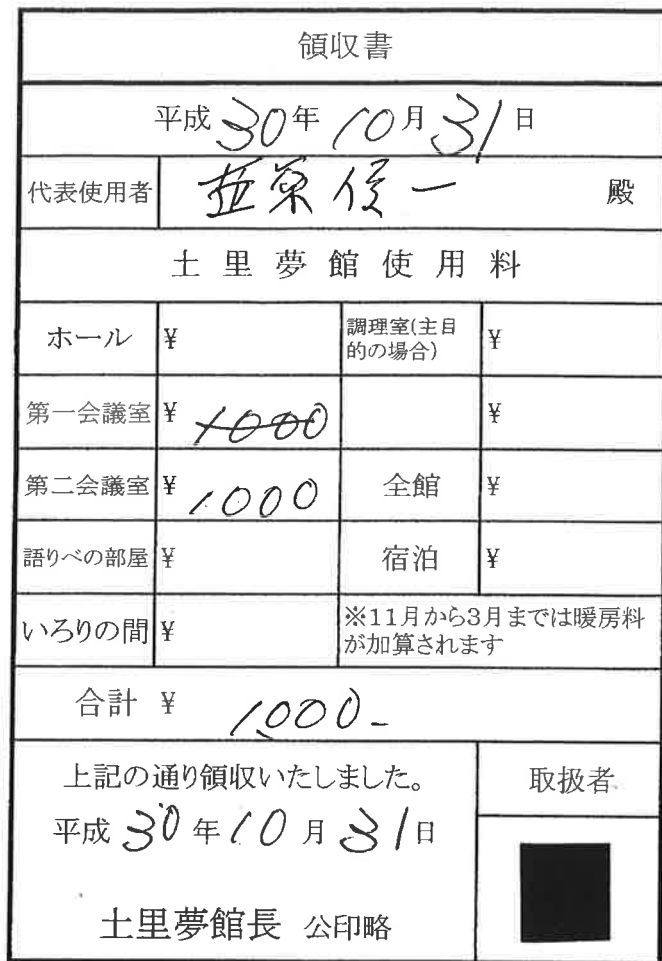 領収書
平成 30年 10月 31日
代表使用者 一 殿
土里夢館使用料
ホール ¥ 調理室(主目的の場合) ¥
第一会議室 ¥ 1000 ¥
第二会議室 ¥ 1000 全館 ¥
語りべの部屋 ¥ 宿泊 ¥
いろりの間 ¥ ※11月から3月までは暖房料が加算されます
合計 ¥ 1,000-
上記の通り領収いたしました。 取扱者
平成 30 年 10 月 31日
土里夢館長 公印略